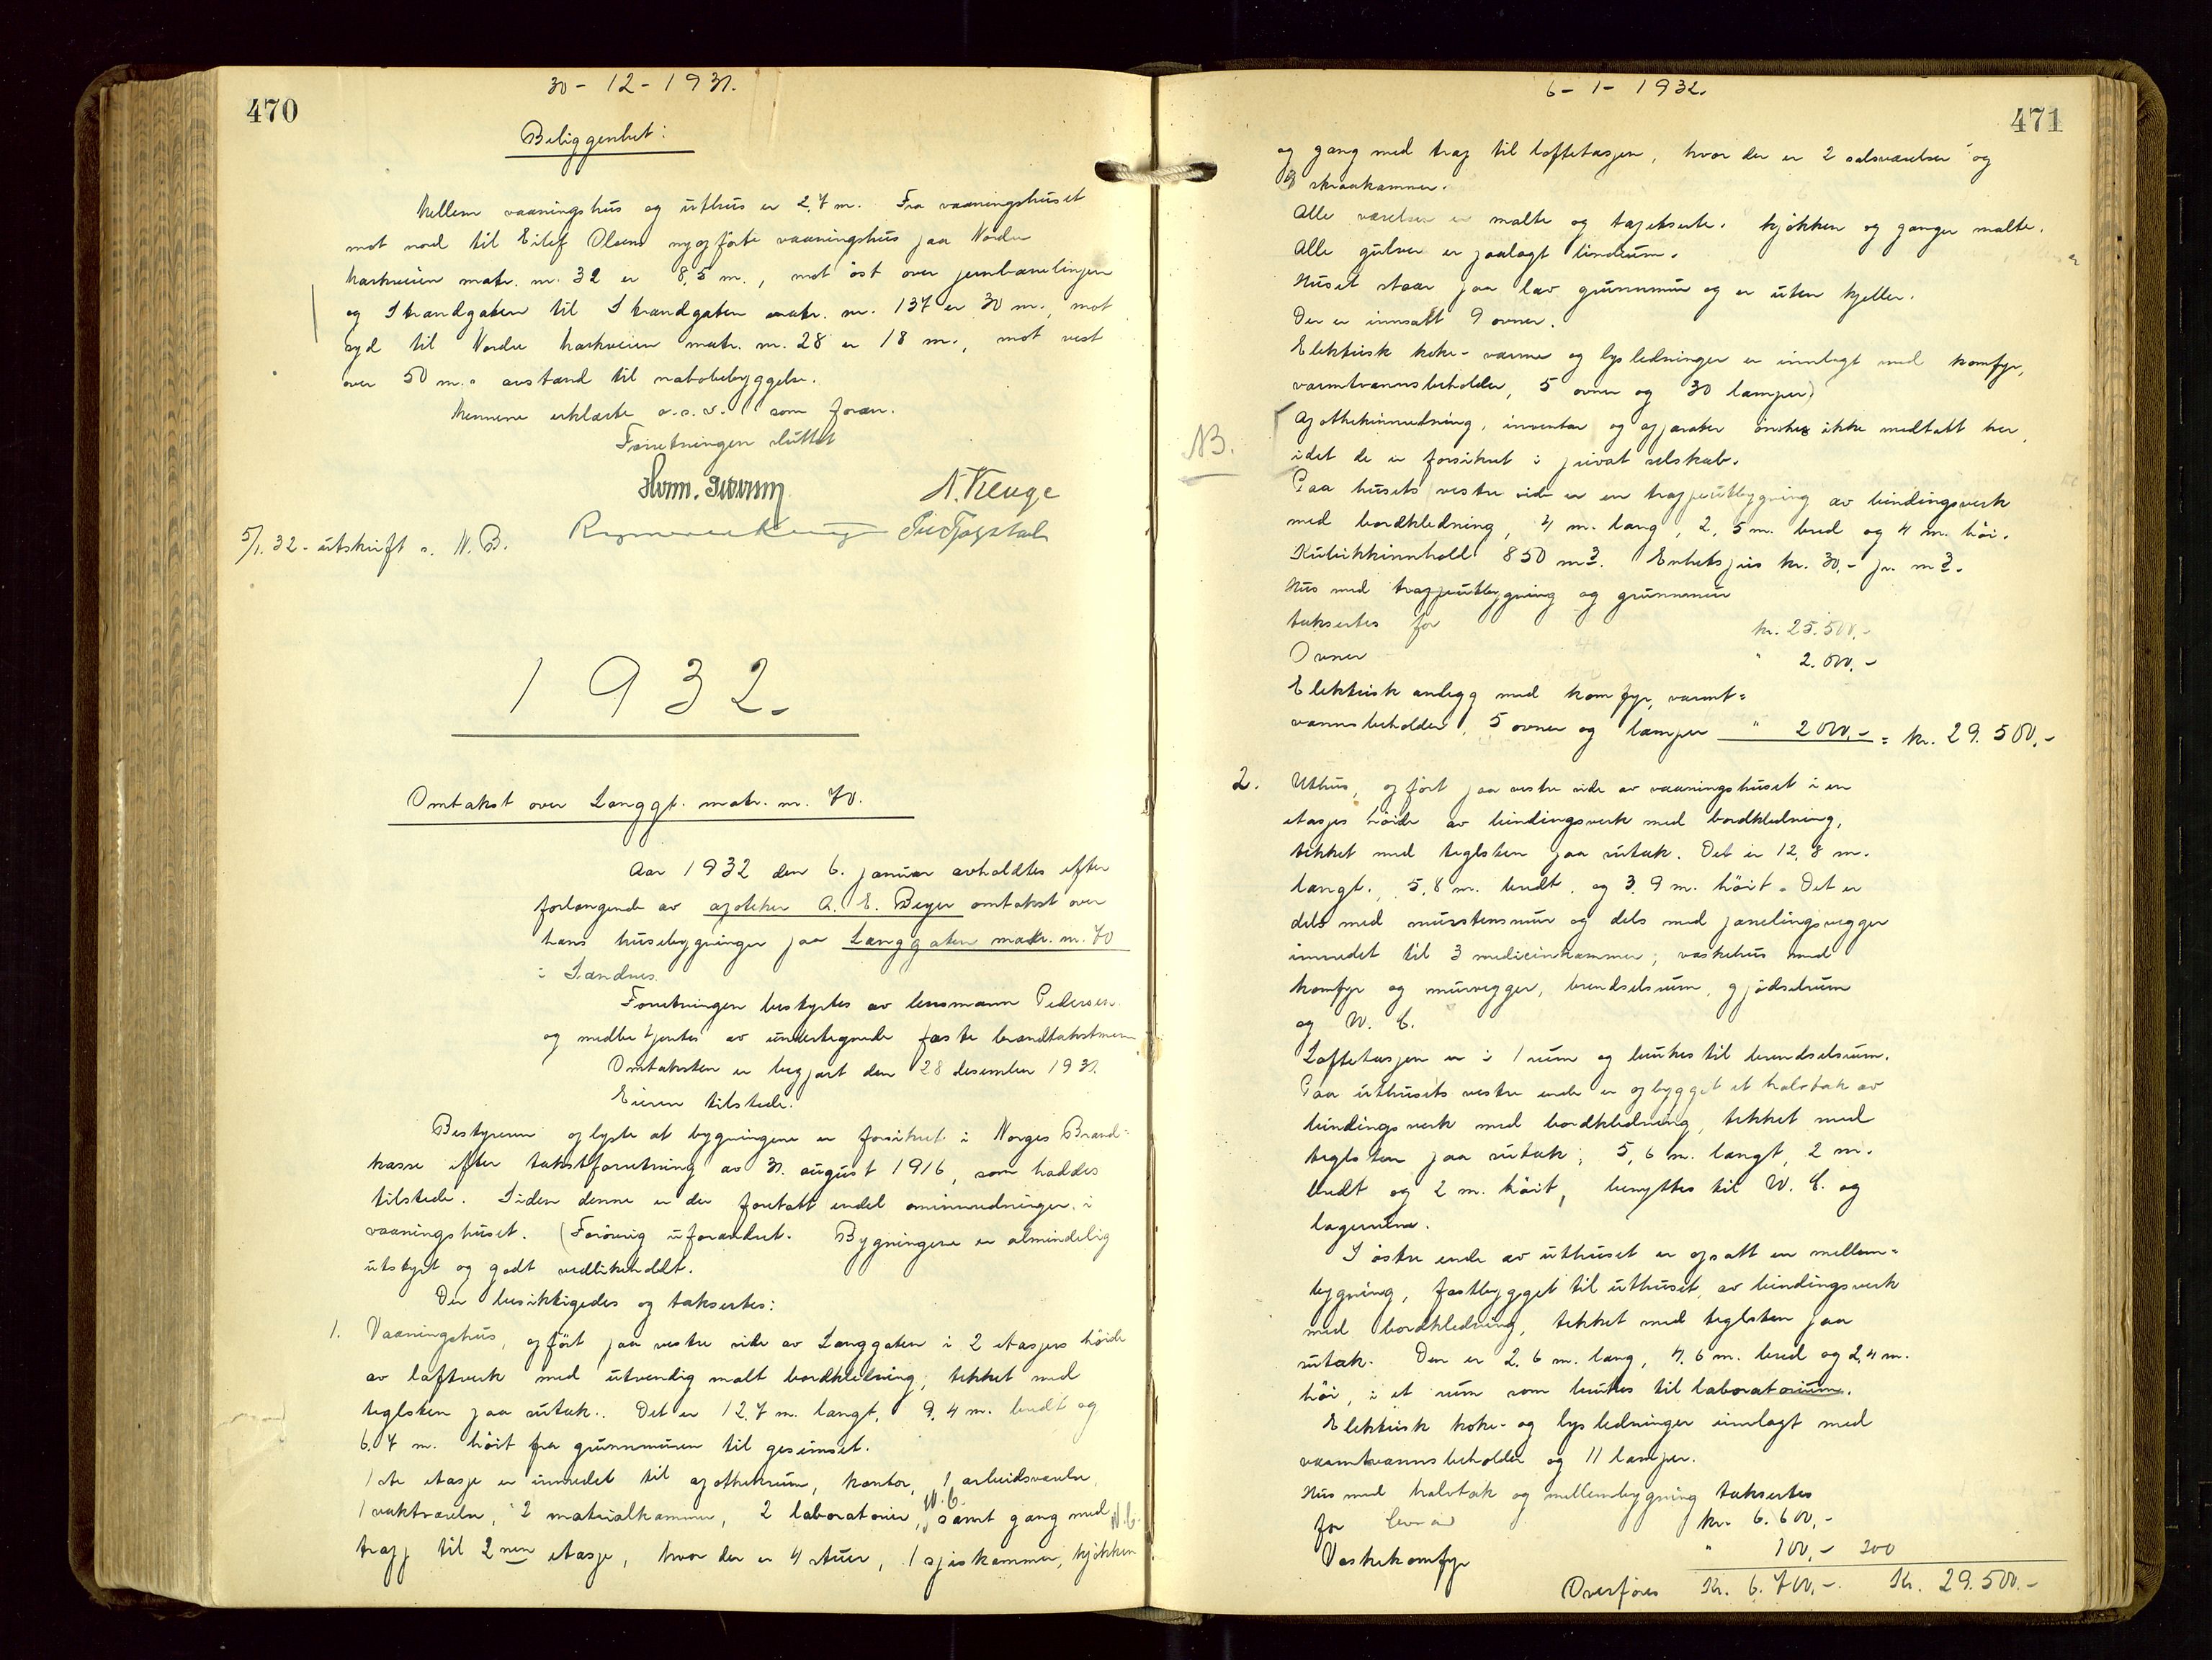 470
30 - 12 - 1931.
Beliggenhet:
Mellem vaaningshus og uthus er 2,7 m. Fra vaaningshuset
mot nord til Eilef Olsens nyopförte vaaningshus paa Nordre
Markveien matr. nr. 32 er 8,5 m., mot öst over jernbanelinjen
og Strandgaten til Strandgaten matr. nr. 137 er 30 m., mot
syd til Nordre Markveien matr. nr. 28 er 18 m., mot vest
over 50 m.s avstand til nabobebyggelse.
Mennene erklærte o.s.v. som foran.
Forretningen sluttet
5/1.32 - utskrift s. N. B.
1932.
Omtakst over Langgt. matr. nr. 70.
Aar 1932 den 6. januar avholdtes efter
forlangende av apoteker A. E. Beyer omtakst over
hans husebygninger paa Langgaten matr. nr. 70
i Sandnes.
Forretningen bestyrtes av lensmann Pedersen
og medbetjentes av undertegnede faste brandtakstmenn
Omtaksten er begjært den 28 desember 1931.
Eieren tilstede.
Bestyreren oplyste at bygningene er forsikret i Norges Brand-
kasse efter takstforretning av 31. august 1916, som haddes
tilstede. Siden denne er der foretatt endel ominnredninger i
vaaningshuset. Forövrig uforandret. Bygningene er almindelig
utstyrt og godt vedlikeholdt.
Der besiktigedes og taksertes:
1. Vaaningshus, opfört paa vestre side av Langgaten i 2 etasjers höide
av laftverk med utvendig malt bordkledning, tekket med
teglsten paa sutak. Det er 12,7 m. langt, 9,4 m. bredt og
6,7 m. höit fra grunnmuren til gesimset.
1ste etasje er innredet til apothekrum, kontor, 1 arbeidsværelse,
1 vaktværelse, 2 materialkammer, 2 laboratorier, W.C. samt gang med W.C.
trapp til 2nen etasje, hvor der er 4 stuer, 1 spiskammer, kjökken
6 - 1 - 1932.
471
og gang med trap til loftetasjen, hvor der er 2 solsværelser og
skraakammer.
Alle værelser er malte og tapetserte. Kjökken og ganger malte.
Alle gulver er paalagt linoleum.
Huset staar paa lav grunnmur og er uten kjeller.
Der er innsatt 9 ovner.
Elektrisk koke- varme og lysledninger er innlagt med komfyr,
varmtvannsbeholder, 5 ovner og 30 lamper.
NB.
Apothekinnredning, inventar og apparater önskes ikke medtatt her,
idet de er forsikret i privat selskab.
Paa husets vestre side er en trappeutbygning av bindingsverk
med bordkledning, 4 m. lang, 2,5 m. bred og 4 m. höi.
Kubikkinnhold 850 m3. Enhetspris kr. 30,- pr. m3.
Hus med trappeutbygning og grunnmur
taksertes for kr. 25.500,-
Ovner " 2.000,-
Elektrisk anlegg med komfyr, varmt-
vannsbeholder, 5 ovner og lamper " 2000,- = kr. 29.500,-
2. Uthus, opfört paa vestre side av vaaningshuset i en
etasjes höide av bindingsverk med bordkledning,
tekket med teglsten paa sutak. Det er 12,8 m.
langt, 5,8 m. bredt, og 3,9 m. höit. Det er
dels med murstensmur og dels med panelingsvegger
innredet til 3 medicinkammer, vaskehus med
komfyr og murvegger, brendselsrum, gjödselrum
og W. C.
Loftetasjen er i 1 rum og brukes til brendselsrum.
Paa uthusets vestre ende er opbygget et halvtak av
bindingsverk med bordkledning, tekket med
teglsten paa sutak, 5,6 m. langt, 2 m.
bredt og 2 m. höit, benyttes til W. C. og
lagerrum.
I östre ende av uthuset er opsatt en mellem-
bygning, fastbygget til uthuset, av bindingsverk
med bordkledning, tekket med teglsten paa
sutak. Den er 2,6 m. lang, 4,6 m. bred og 2,4 m.
höi, i et rum som brukes til laboratorium.
Elektrisk koke- og lysledninger innlagt med
varmtvannsbeholder og 11 lamper.
Hus med halvtak og mellembygning taksertes
for kr. 6.600,-
Vaskekomfyr " 100,- 200
Overföres Kr. 6.700,- Kr. 29.500,-